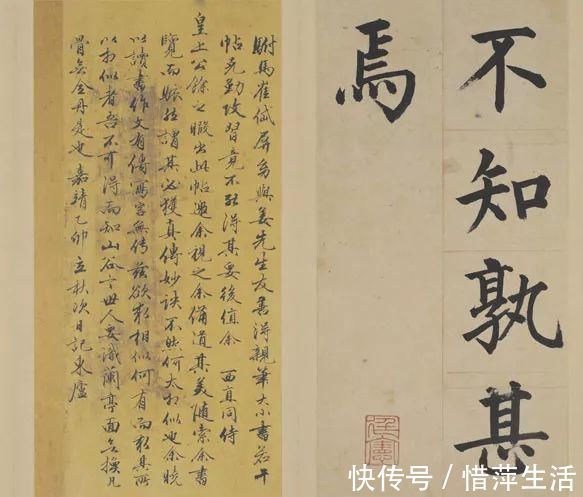 不知孰甚
焉
駙馬崔岱屏多與姜先生友善得親筆大小書若干
帖克勤攻習竟不能得其要後值余西直同侍
皇上公餘之暇出此帖邀余視之余備道其美隨索余書
覽而賑然謂其必獲真傳妙訣不然何太相似也余曉
以讀書作文有傳寫字無傳茲欲求相似何有而求其所
以相似者吾不可得而知山谷云世人要識蘭亭面無換凡
骨無金丹是也嘉靖乙卯立秋次日記東廬
快传号/惜萍生活